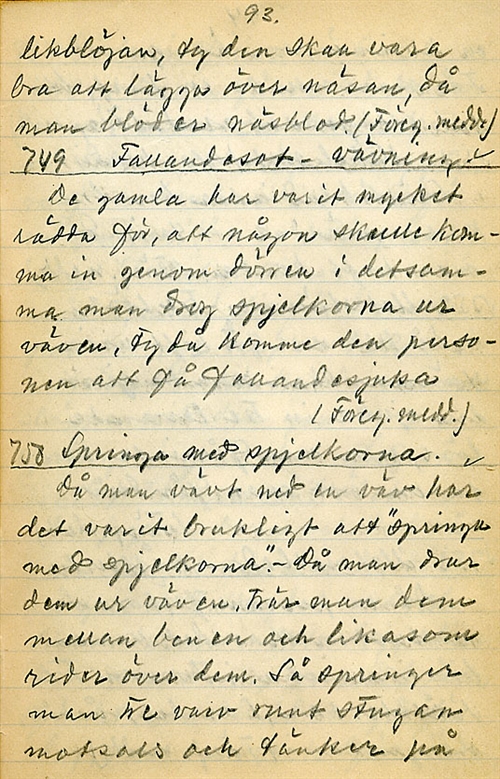 93.
likblöjan, ty den skall vara
bra att lägga över näsan, då
man blöder näsblod. (Föreg. medd.)
749 Fallandesot - vävning. ✓
De gamla har varit mycket
rädda för, att någon skulle kom-
ma in genom dörren i detsam-
ma man drog spjelkorna ur
väven, ty då komme den perso-
nen att få fallandesjuka
(Föreg. medd.)
750 Springa med spjelkorna. ✓
Då man vävt ned en väv har
det varit brukligt att "springa
med spjelkorna".- Då man drar
dem ur väven, trär man dem
mellan benen och likasom
rider över dem. Så springer
man tre varv runt stugan
motsols och tänker på